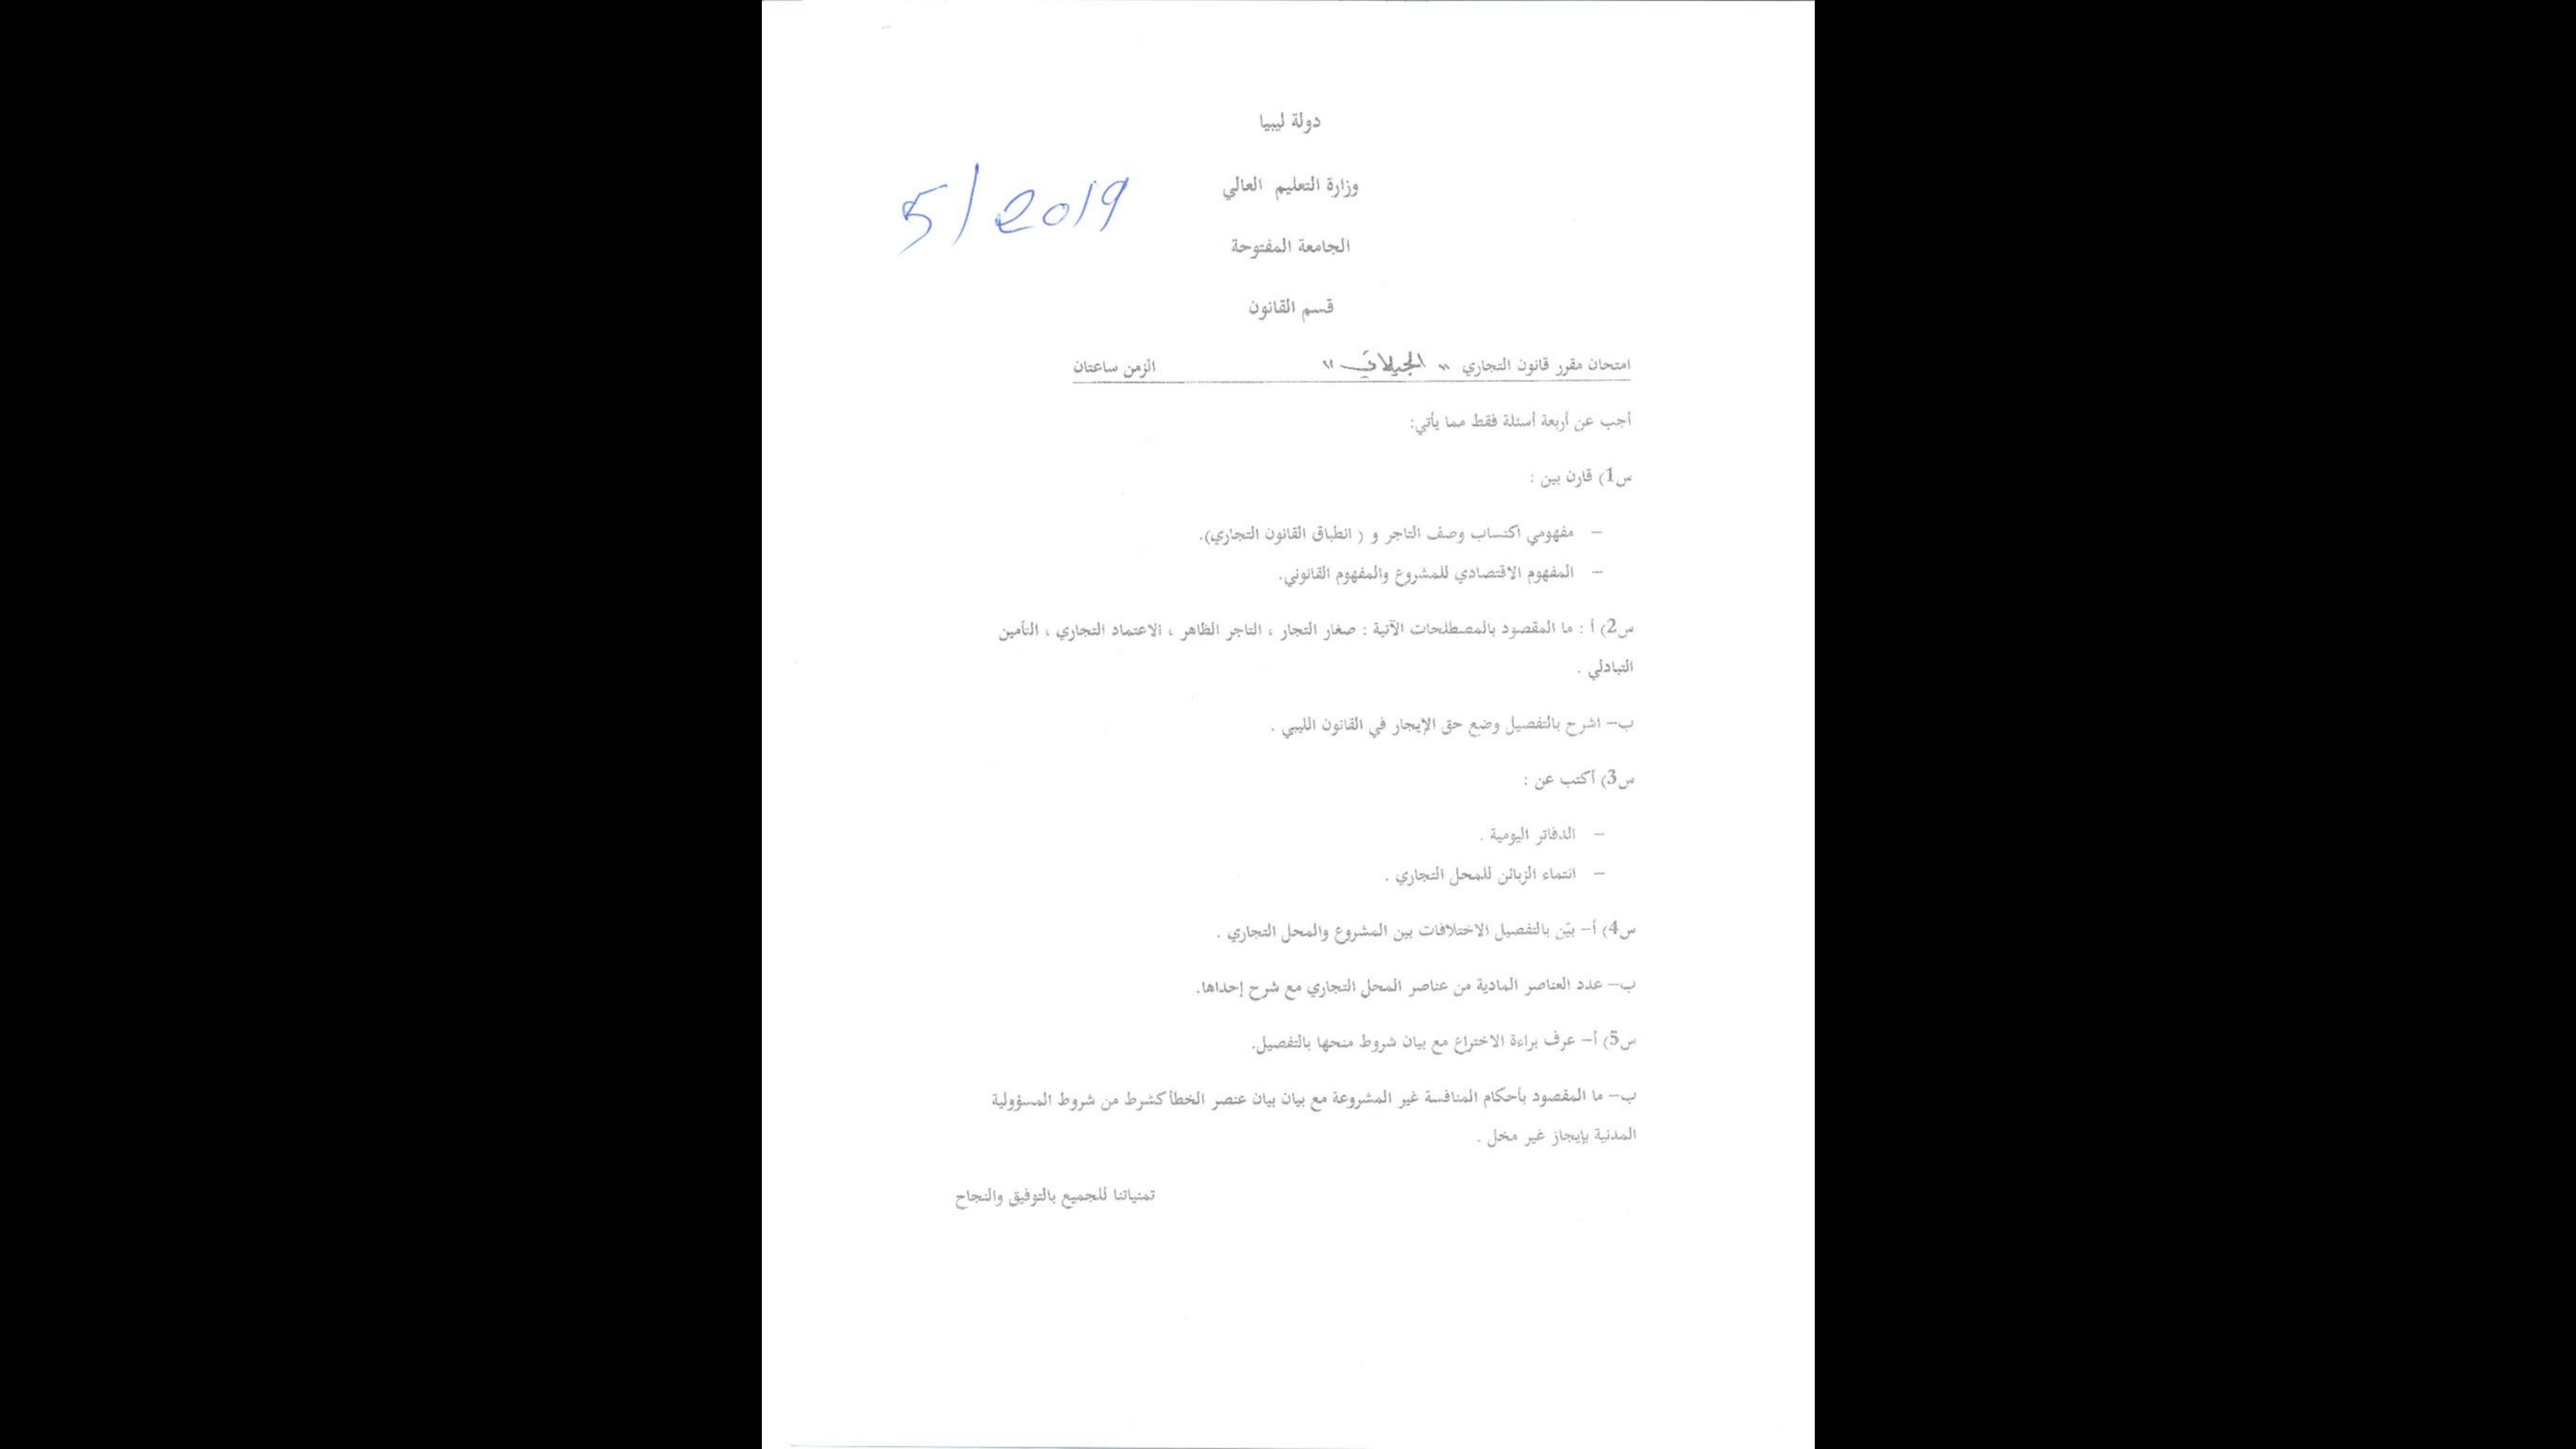 دولة ليبيا
وزارة التعليم العالي
5/2019
الجامعة المفتوحة
قسم القانون
امتحان مقرر قانون التجاري " الجيلاني " الزمن ساعتان
أجب عن أربعة أسئلة فقط مما يأتي:
س1) قارن بين :
– مفهومي اكتساب وصف التاجر و ( انطباق القانون التجاري).
– المفهوم الاقتصادي للمشروع والمفهوم القانوني.
س2) أ : ما المقصود بالمصطلحات الآتية : صغار التجار ، التاجر الظاهر ، الاعتماد التجاري ، التأمين
التبادلي .
ب– اشرح بالتفصيل وضع حق الإيجار في القانون الليبي .
س3) أكتب عن :
– الدفاتر اليومية .
– انتماء الزبائن للمحل التجاري .
س4) أ– بيّن بالتفصيل الاختلافات بين المشروع والمحل التجاري .
ب– عدد العناصر المادية من عناصر المحل التجاري مع شرح إحداها.
س5) أ– عرف براءة الاختراع مع بيان شروط منحها بالتفصيل.
ب– ما المقصود بأحكام المنافسة غير المشروعة مع بيان بيان عنصر الخطأ كشرط من شروط المسؤولية
المدنية بإيجاز غير مخل .
تمنياتنا للجميع بالتوفيق والنجاح